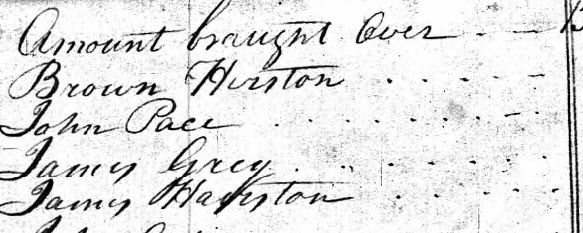 Amount braught Over
Brown Hirston
John Pace
James Grey
James Hairston
John